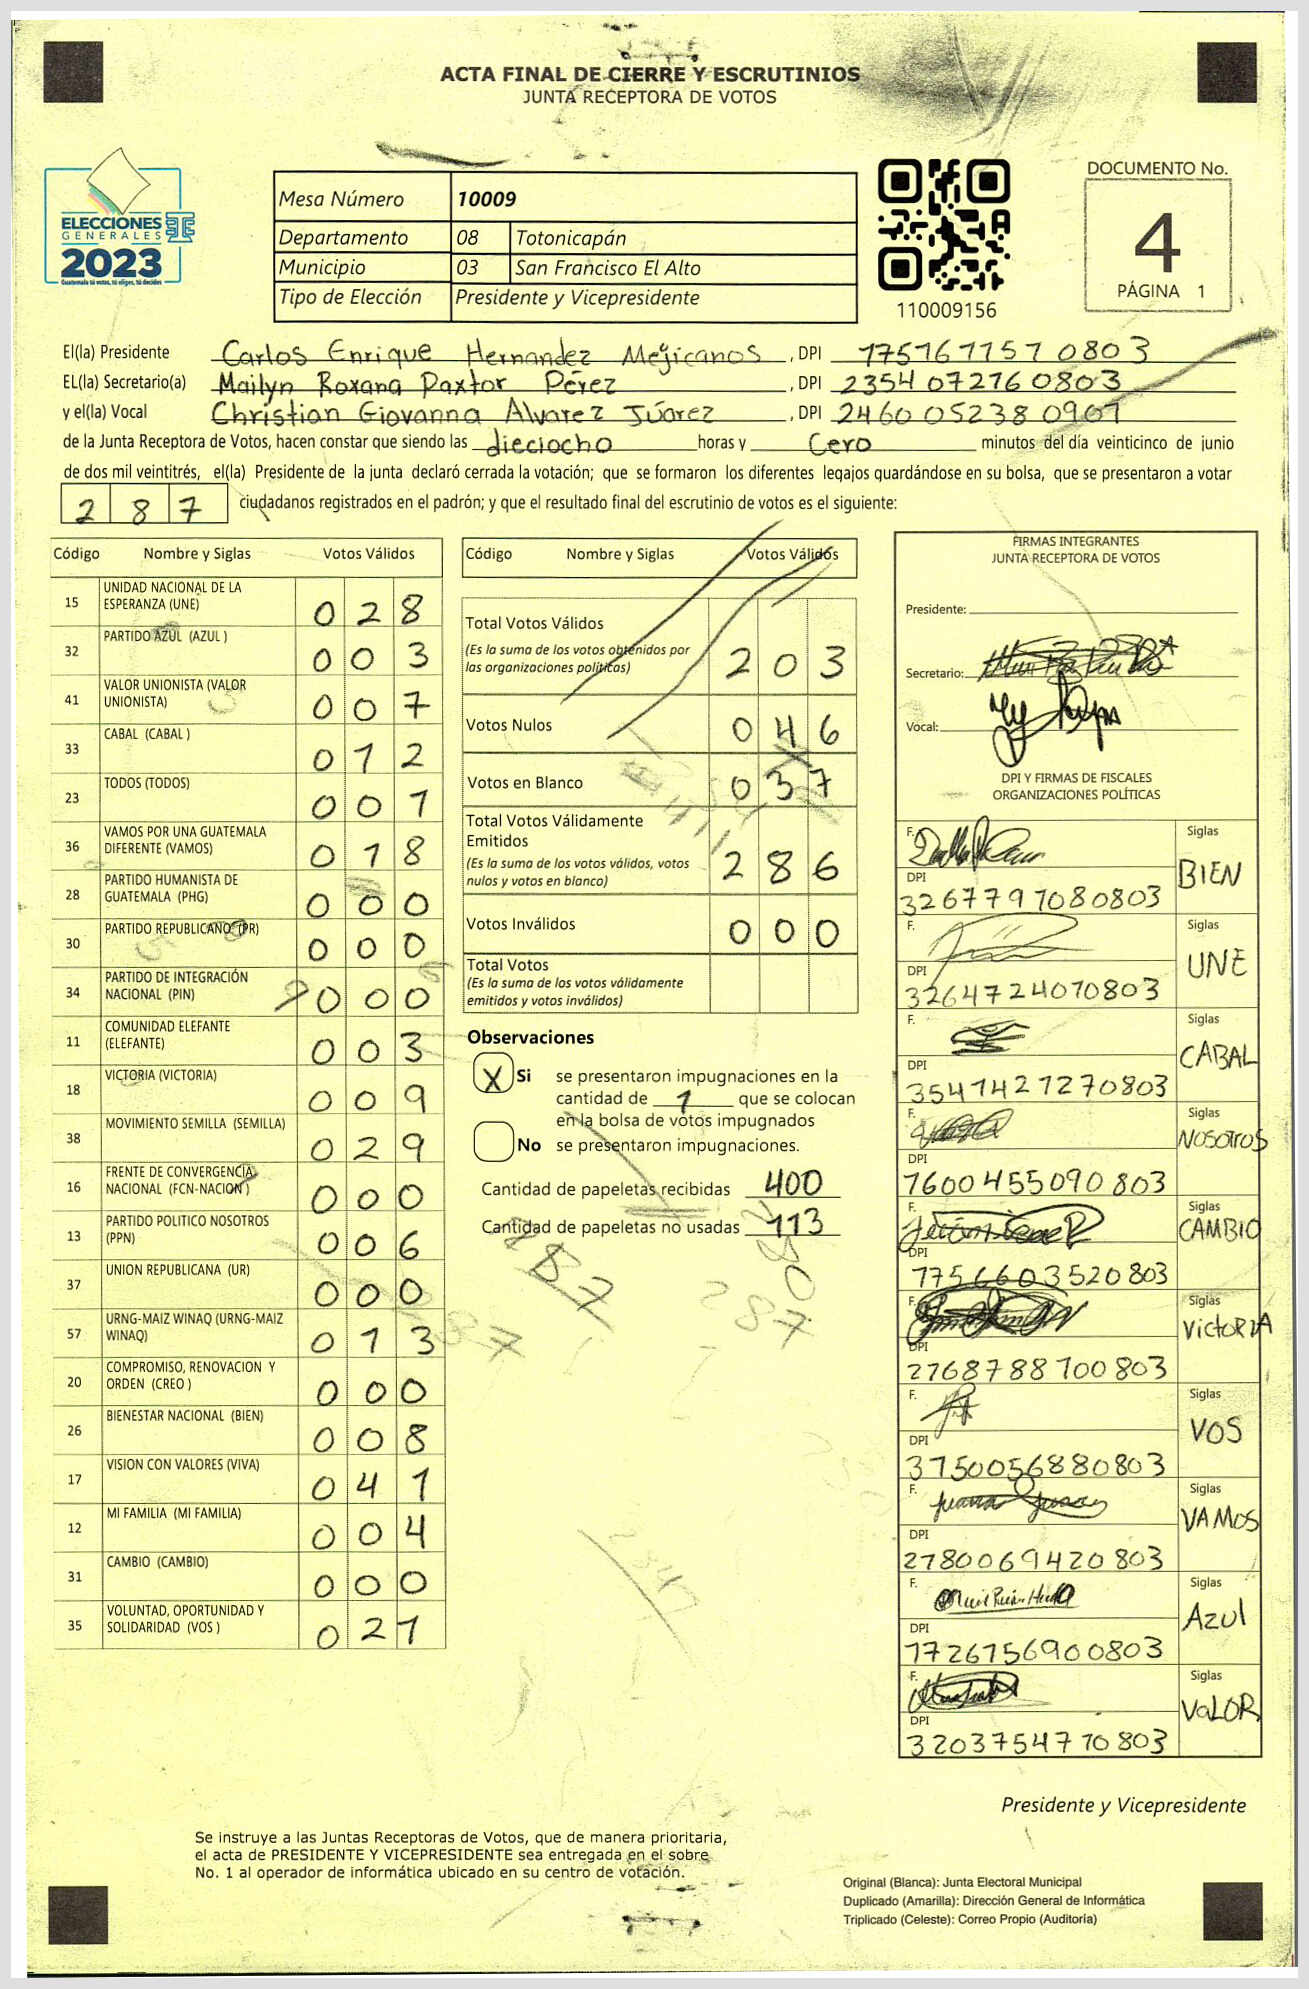 ACTA FINAL DE CIERRE Y ESCRUTINIOS
JUNTA RECEPTORA DE VOTOS
ELECCIONES
GENERALES
2023
Guatemala tú votas, tú eliges, tú decides
Mesa Número 10009
Departamento 08 Totonicapán
Municipio 03 San Francisco El Alto
Tipo de Elección Presidente y Vicepresidente
110009156
DOCUMENTO No.
4
PÁGINA 1
El(la) Presidente Carlos Enrique Hernandez Mejicanos, DPI 1751671570803
EL(la) Secretario(a) Mailyn Roxana Paxtor Pérez, DPI 2354072760803
y el(la) Vocal Christian Giovanna Alvarez Júarez, DPI 2460052380901
de la Junta Receptora de Votos, hacen constar que siendo las dieciocho horas y Cero minutos del día veinticinco de junio
de dos mil veintitrés, el(la) Presidente de la junta declaró cerrada la votación; que se formaron los diferentes legajos guardándose en su bolsa, que se presentaron a votar
287 ciudadanos registrados en el padrón; y que el resultado final del escrutinio de votos es el siguiente:
Código Nombre y Siglas Votos Válidos
15 UNIDAD NACIONAL DE LA ESPERANZA (UNE) 028
32 PARTIDO AZUL (AZUL ) 003
41 VALOR UNIONISTA (VALOR UNIONISTA) 007
33 CABAL (CABAL ) 012
23 TODOS (TODOS) 001
36 VAMOS POR UNA GUATEMALA DIFERENTE (VAMOS) 018
28 PARTIDO HUMANISTA DE GUATEMALA (PHG) 000
30 PARTIDO REPUBLICANO (PR) 000
34 PARTIDO DE INTEGRACIÓN NACIONAL (PIN) 000
11 COMUNIDAD ELEFANTE (ELEFANTE) 003
18 VICTORIA (VICTORIA) 009
38 MOVIMIENTO SEMILLA (SEMILLA) 029
16 FRENTE DE CONVERGENCIA NACIONAL (FCN-NACION ) 000
13 PARTIDO POLITICO NOSOTROS (PPN) 006
37 UNION REPUBLICANA (UR) 000
57 URNG-MAIZ WINAQ (URNG-MAIZ WINAQ) 013
20 COMPROMISO, RENOVACION Y ORDEN (CREO ) 000
26 BIENESTAR NACIONAL (BIEN) 008
17 VISION CON VALORES (VIVA) 041
12 MI FAMILIA (MI FAMILIA) 004
31 CAMBIO (CAMBIO) 000
35 VOLUNTAD, OPORTUNIDAD Y SOLIDARIDAD (VOS ) 021
Código Nombre y Siglas Votos Válidos
Total Votos Válidos
(Es la suma de los votos obtenidos por
las organizaciones políticas) 203
Votos Nulos 046
Votos en Blanco 037
Total Votos Válidamente
Emitidos
(Es la suma de los votos válidos, votos
nulos y votos en blanco) 286
Votos Inválidos 000
Total Votos
(Es la suma de los votos válidamente
emitidos y votos inválidos)
Observaciones
X Si se presentaron impugnaciones en la
cantidad de 1 que se colocan
en la bolsa de votos impugnados
No se presentaron impugnaciones.
Cantidad de papeletas recibidas 400
Cantidad de papeletas no usadas 113
287
287
FIRMAS INTEGRANTES
JUNTA RECEPTORA DE VOTOS
Presidente:
Secretario:
Vocal:
DPI Y FIRMAS DE FISCALES
ORGANIZACIONES POLÍTICAS
F. Siglas BIEN
DPI 3267797080803
F. Siglas UNE
DPI 3264724070803
F. Siglas CABAL
DPI 3547427270803
F. Siglas NOSOTROS
DPI 7600455090803
F. Siglas CAMBIO
DPI 7756603520803
F. Siglas VICTORIA
DPI 2768788700803
F. Siglas VOS
DPI 3750056880803
F. Siglas VAMOS
DPI 2780069420803
F. Siglas Azul
DPI 1726756900803
F. Siglas VaLOR
DPI 3203754770803
Presidente y Vicepresidente
Se instruye a las Juntas Receptoras de Votos, que de manera prioritaria,
el acta de PRESIDENTE Y VICEPRESIDENTE sea entregada en el sobre
No. 1 al operador de informática ubicado en su centro de votación.
Original (Blanca): Junta Electoral Municipal
Duplicado (Amarilla): Dirección General de Informática
Triplicado (Celeste): Correo Propio (Auditoría)